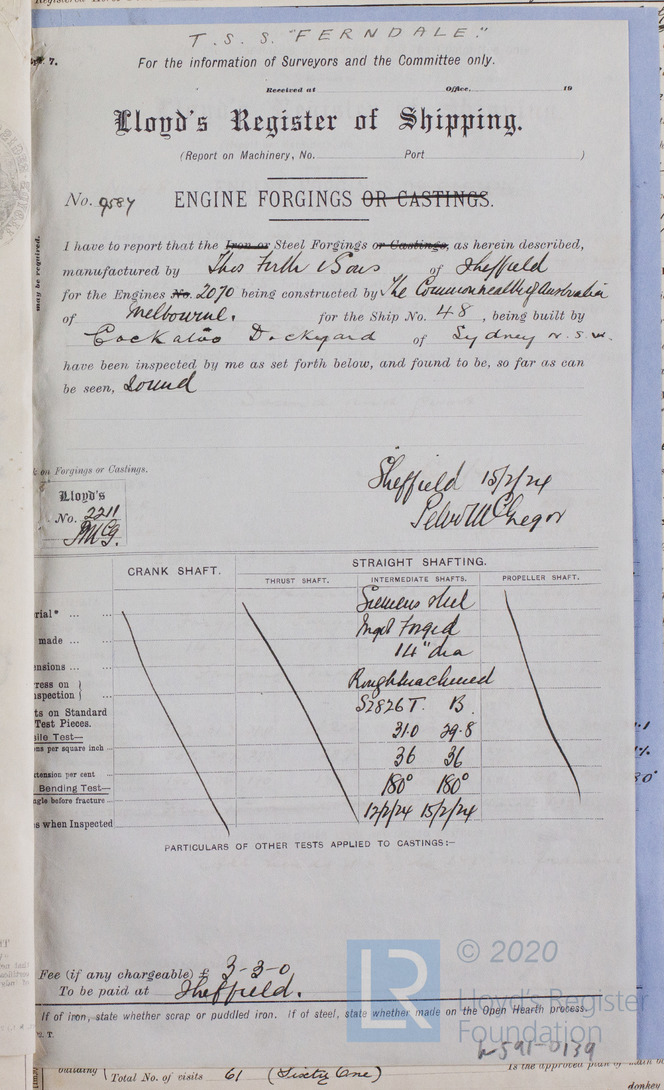 T.S.S. "FERNDALE."
For the information of Surveyors and the Committee only.
Received at Office, 19
Lloyd's Register of Shipping.
(Report on Machinery, No. Port )
No. 9587 ENGINE FORGINGS OR CASTINGS.
may be required.
I have to report that the Iron or Steel Forgings or Castings, as herein described,
manufactured by Thos Firth & Sons of Sheffield
for the Engines No. 2070 being constructed by The Commonwealth of Australia
of Melbourne. for the Ship No. 48, being built by
Cockatoo Dockyard of Sydney N.S.W.
have been inspected by me as set forth below, and found to be, so far as can
be seen, Sound
on Forgings or Castings.
Sheffield 15/2/24
Peter McGregor
Lloyd's
No. 2211
PMcG.
CRANK SHAFT. STRAIGHT SHAFTING.
THRUST SHAFT. INTERMEDIATE SHAFTS. PROPELLER SHAFT.
rial* ... ... Siemens steel
made ... ... Ingot Forged
ensions ... ... 14" dia
ress on }
spection } Roughmachined
ts on Standard
Test Pieces. S2826T. B.
ile Test—
ns per square inch ... 31.0 29.8
xtension per cent ... 36 36
Bending Test—
ngle before fracture ... 180° 180°
s when Inspected 12/2/24 15/2/24
PARTICULARS OF OTHER TESTS APPLIED TO CASTINGS:—
Fee (if any chargeable) £ 3-3-0
To be paid at Sheffield.
If of iron, state whether scrap or puddled iron. If of steel, state whether made on the Open Hearth process.
LR
© 2020
Lloyd's Register
Foundation
W591-0139
building Total No. of visits 61 (Sixty One)
Is the approved plan of main
donkey